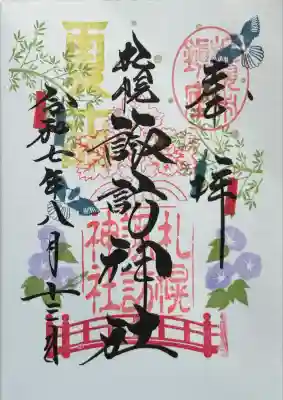 奉拝
札幌諏訪神社
令和七年八月十三日
札幌
諏訪
神社